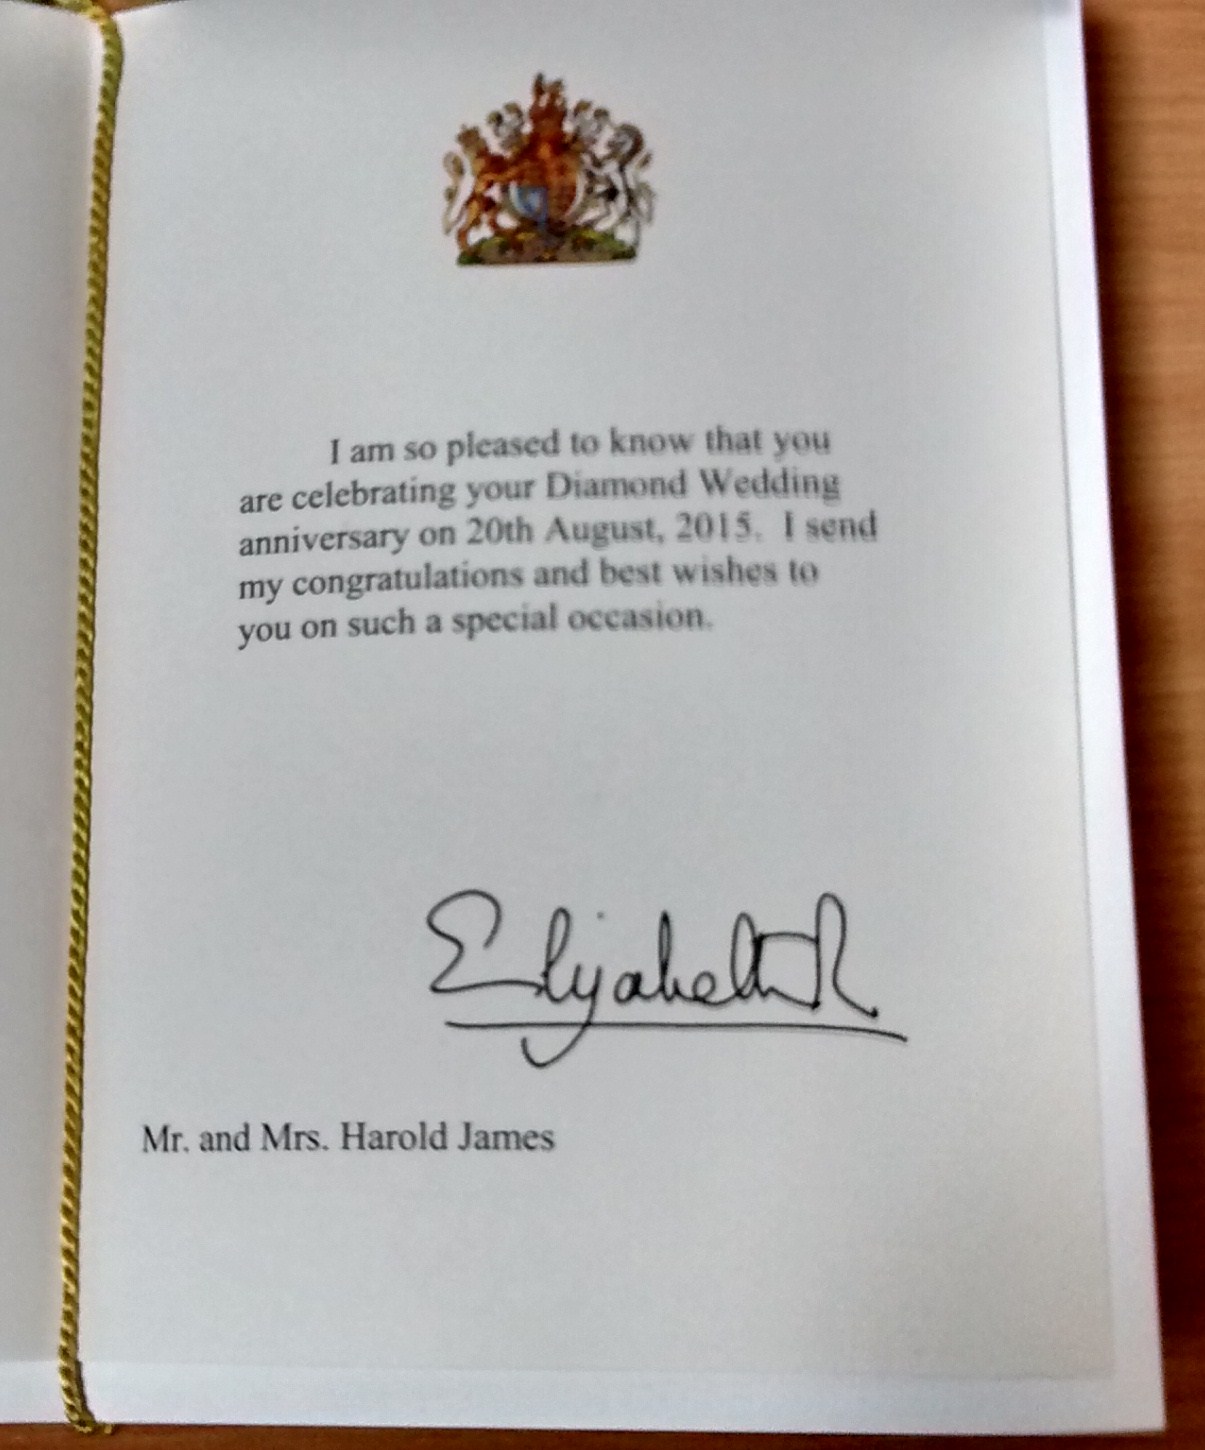 I am so pleased to know that you
are celebrating your Diamond Wedding
anniversary on 20th August, 2015. I send
my congratulations and best wishes to
you on such a special occasion.
Elizabeth R
Mr. and Mrs. Harold James